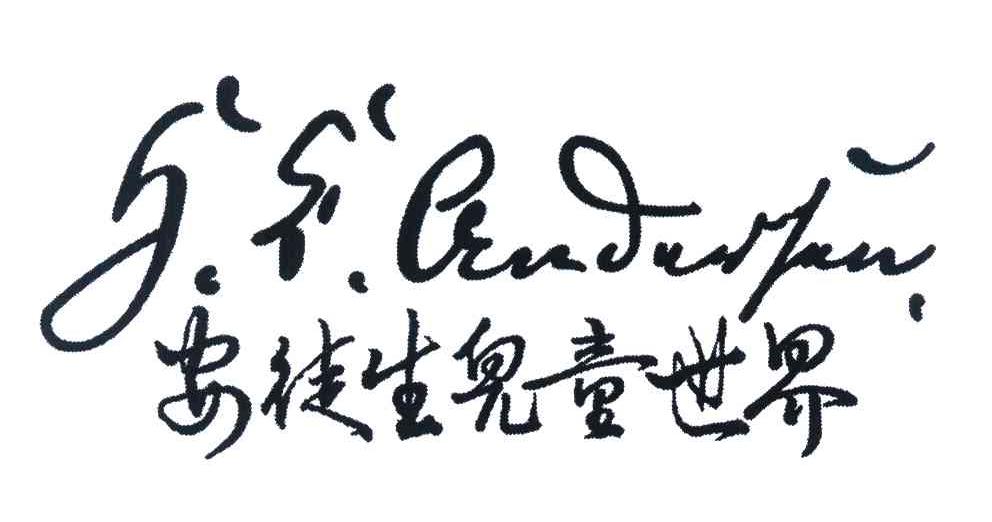 H. C. Andersen.
安徒生兒童世界